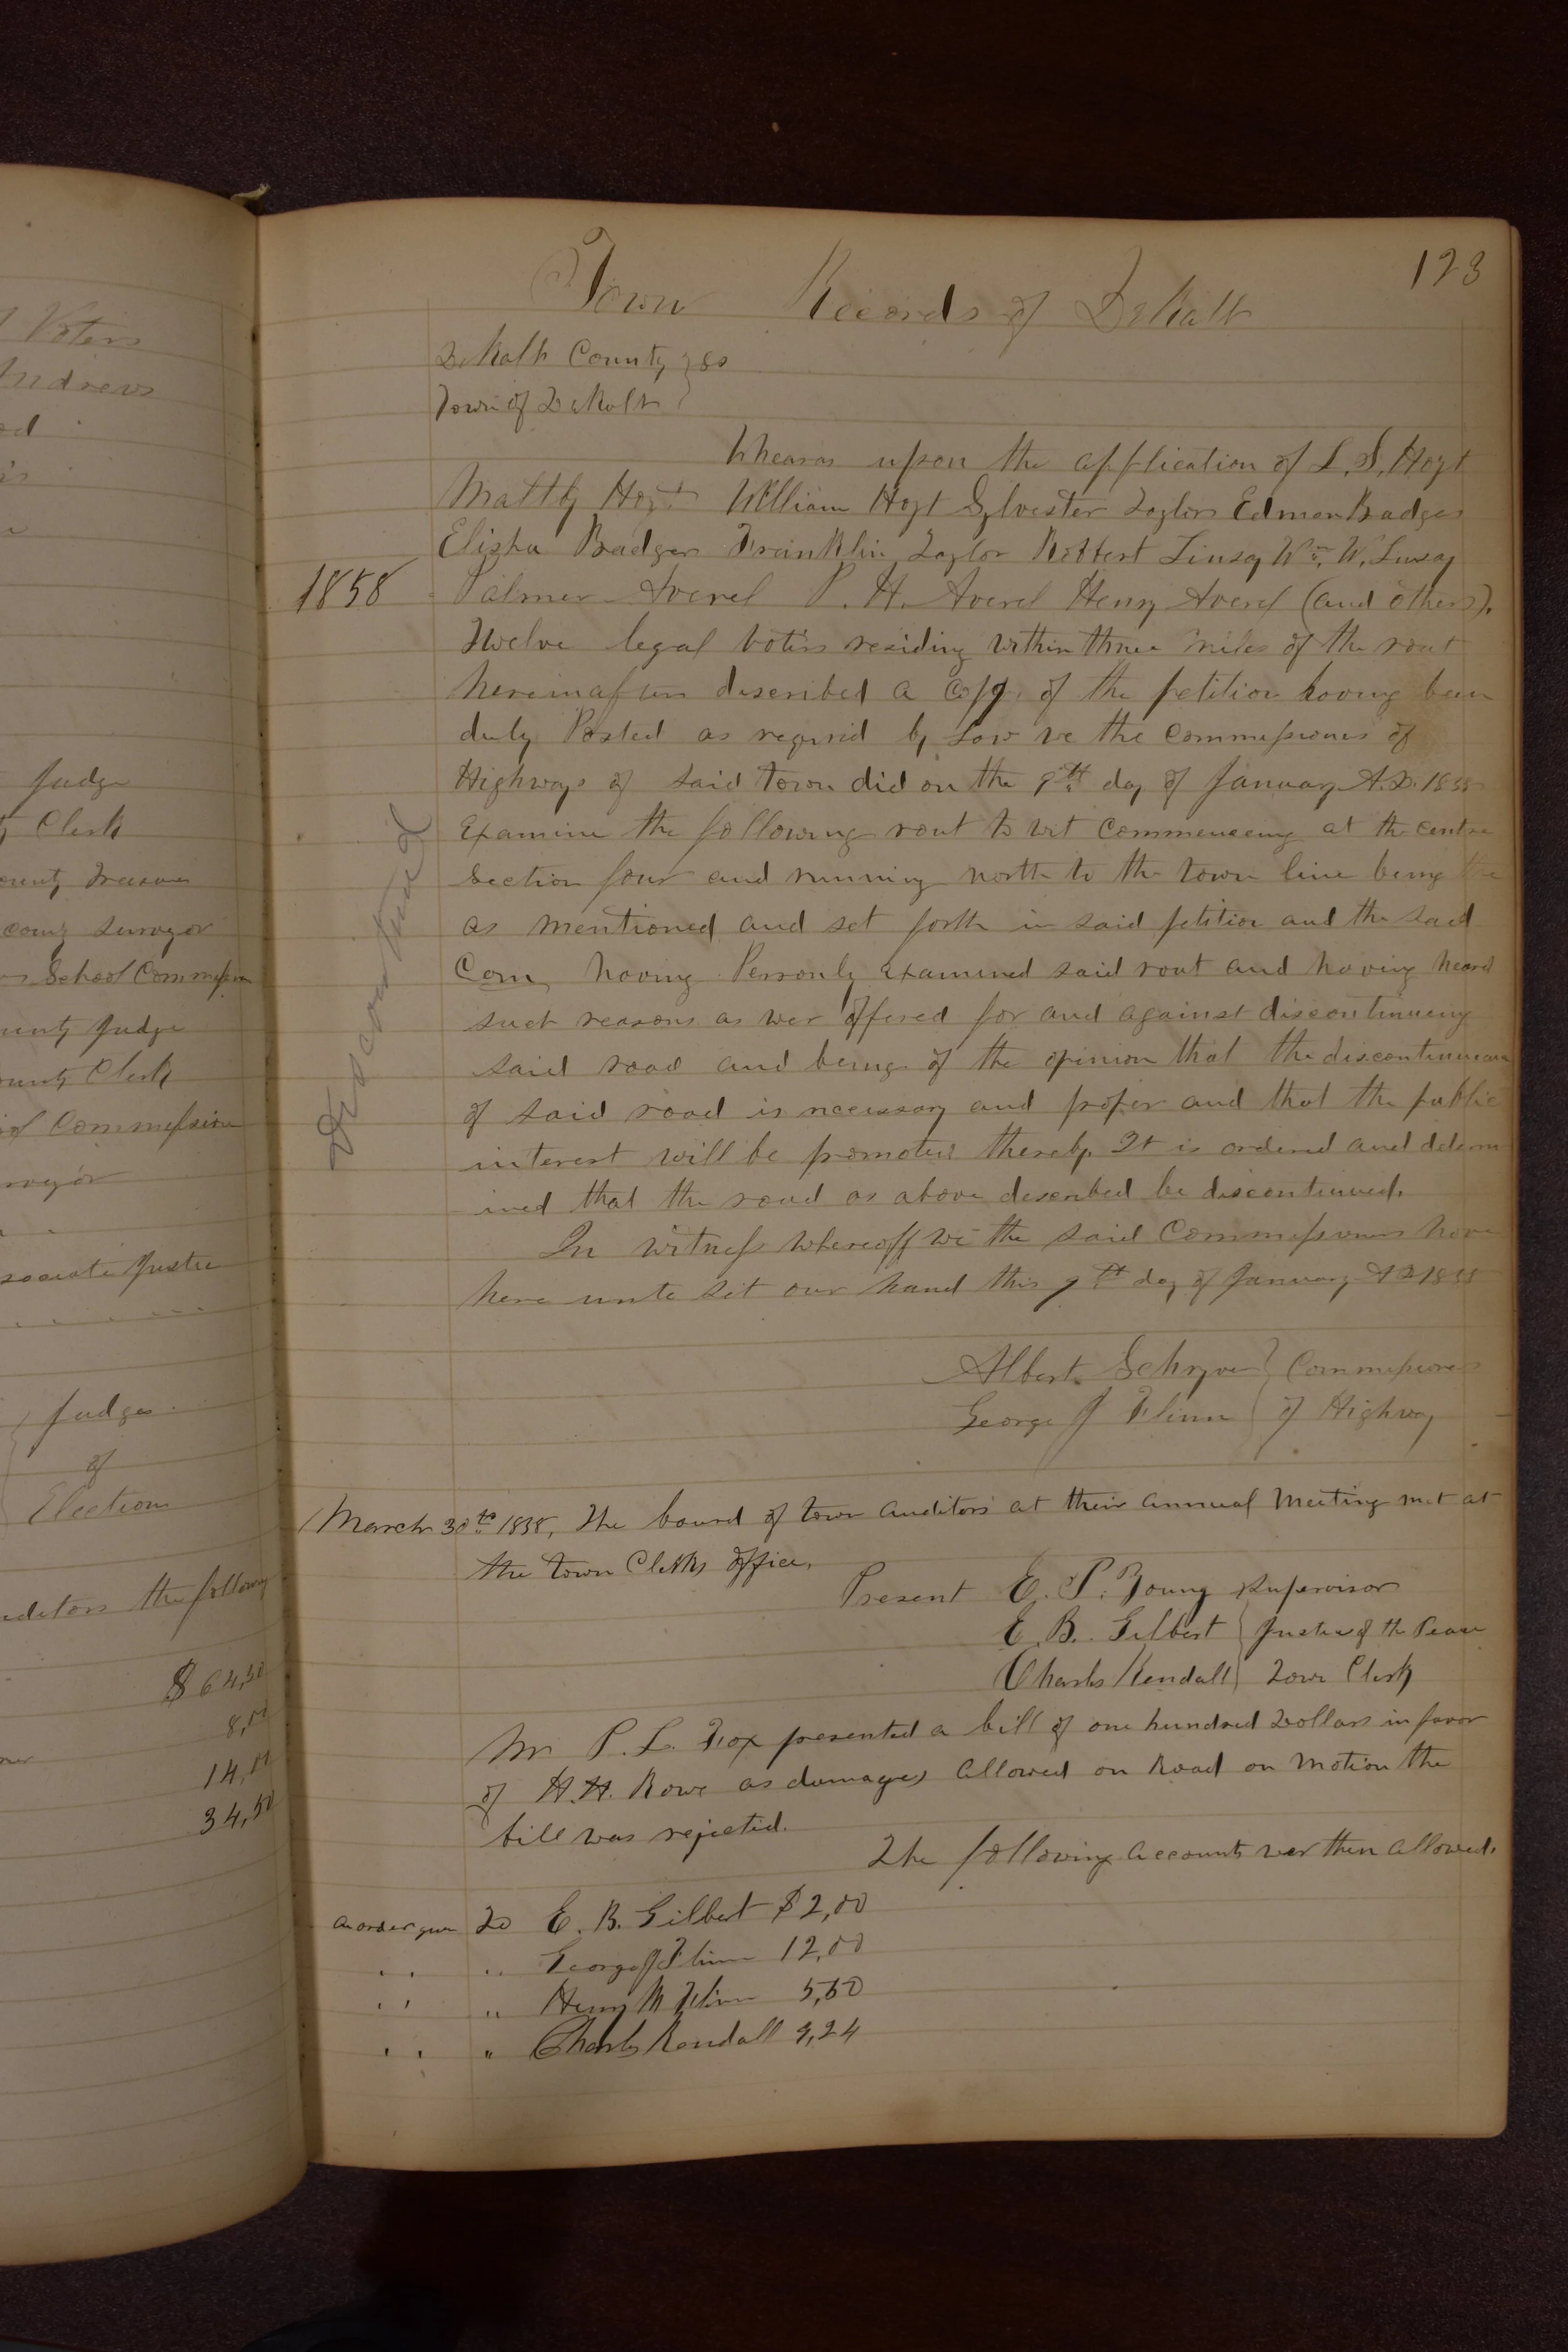 l Voters
Andrews
Judge
y Clerk
ounty Treasurer
county Surveyor
School Commission
ounty Judge
ounty Clerk
ol Commission
rveyor
ssociate Justice
Judges
of
Election
uditors the following
$64,50
8,00
14,00
34,50
123
Town Records of DeKalb
DeKalb County } ss
Town of DeKalb }
Wheares upon the application of L. S. Hoyt
Hoyt William Hoyt Sylvester Taylor Edmon Badger
Elisha Badger Franklin Taylor Robbert Linsay Wm. W. Linsay
1858 Palmer Averel P. H. Averel Henry Averel (and others).
Twelve legal voters residing within three miles of the rout
hereinafter described a copy of the petition having been
duly Posted as required by Law we the Commissioners of
Highways of said town did on the 9th day of January A.D. 1858
Examine the following rout to wit commencing at the centre
Section four and running north to the town line being the
as mentioned and set forth in said petition and the said
Com having Personly examined said rout and having heard
such reasons as wer offered for and against discontinueing
said road and being of the opinion that the discontinueance
of said road is necessary and proper and that the public
interest will be promoted thereby. It is ordered and determ
ined that the road as above described be discontinued.
Discontinued
In witness whereoff we the said Commissioners have
here unto set our hand this 9th day of January AD 1858
Albert Schryver } Commissioners
George J Flinn } of Highway
March 30th 1858, The board of town auditors at their annual Meeting met at
the town Clerks office.
Present E. P. Young Supervisor
E. B. Gilbert } Justice of the Peace
Charles Kendall } Town Clerk
Mr P. L. Fox presented a bill of one hundred Dollars in favor
of H.H. Rowe as damages allowed on Road on motion the
bill was rejected.
The following accounts wer then allowed.
an order given To E. B. Gilbert $2,00
" " George J Flinn 12,00
" " Henry M Flinn 5,50
" " Charles Kendall 9,24